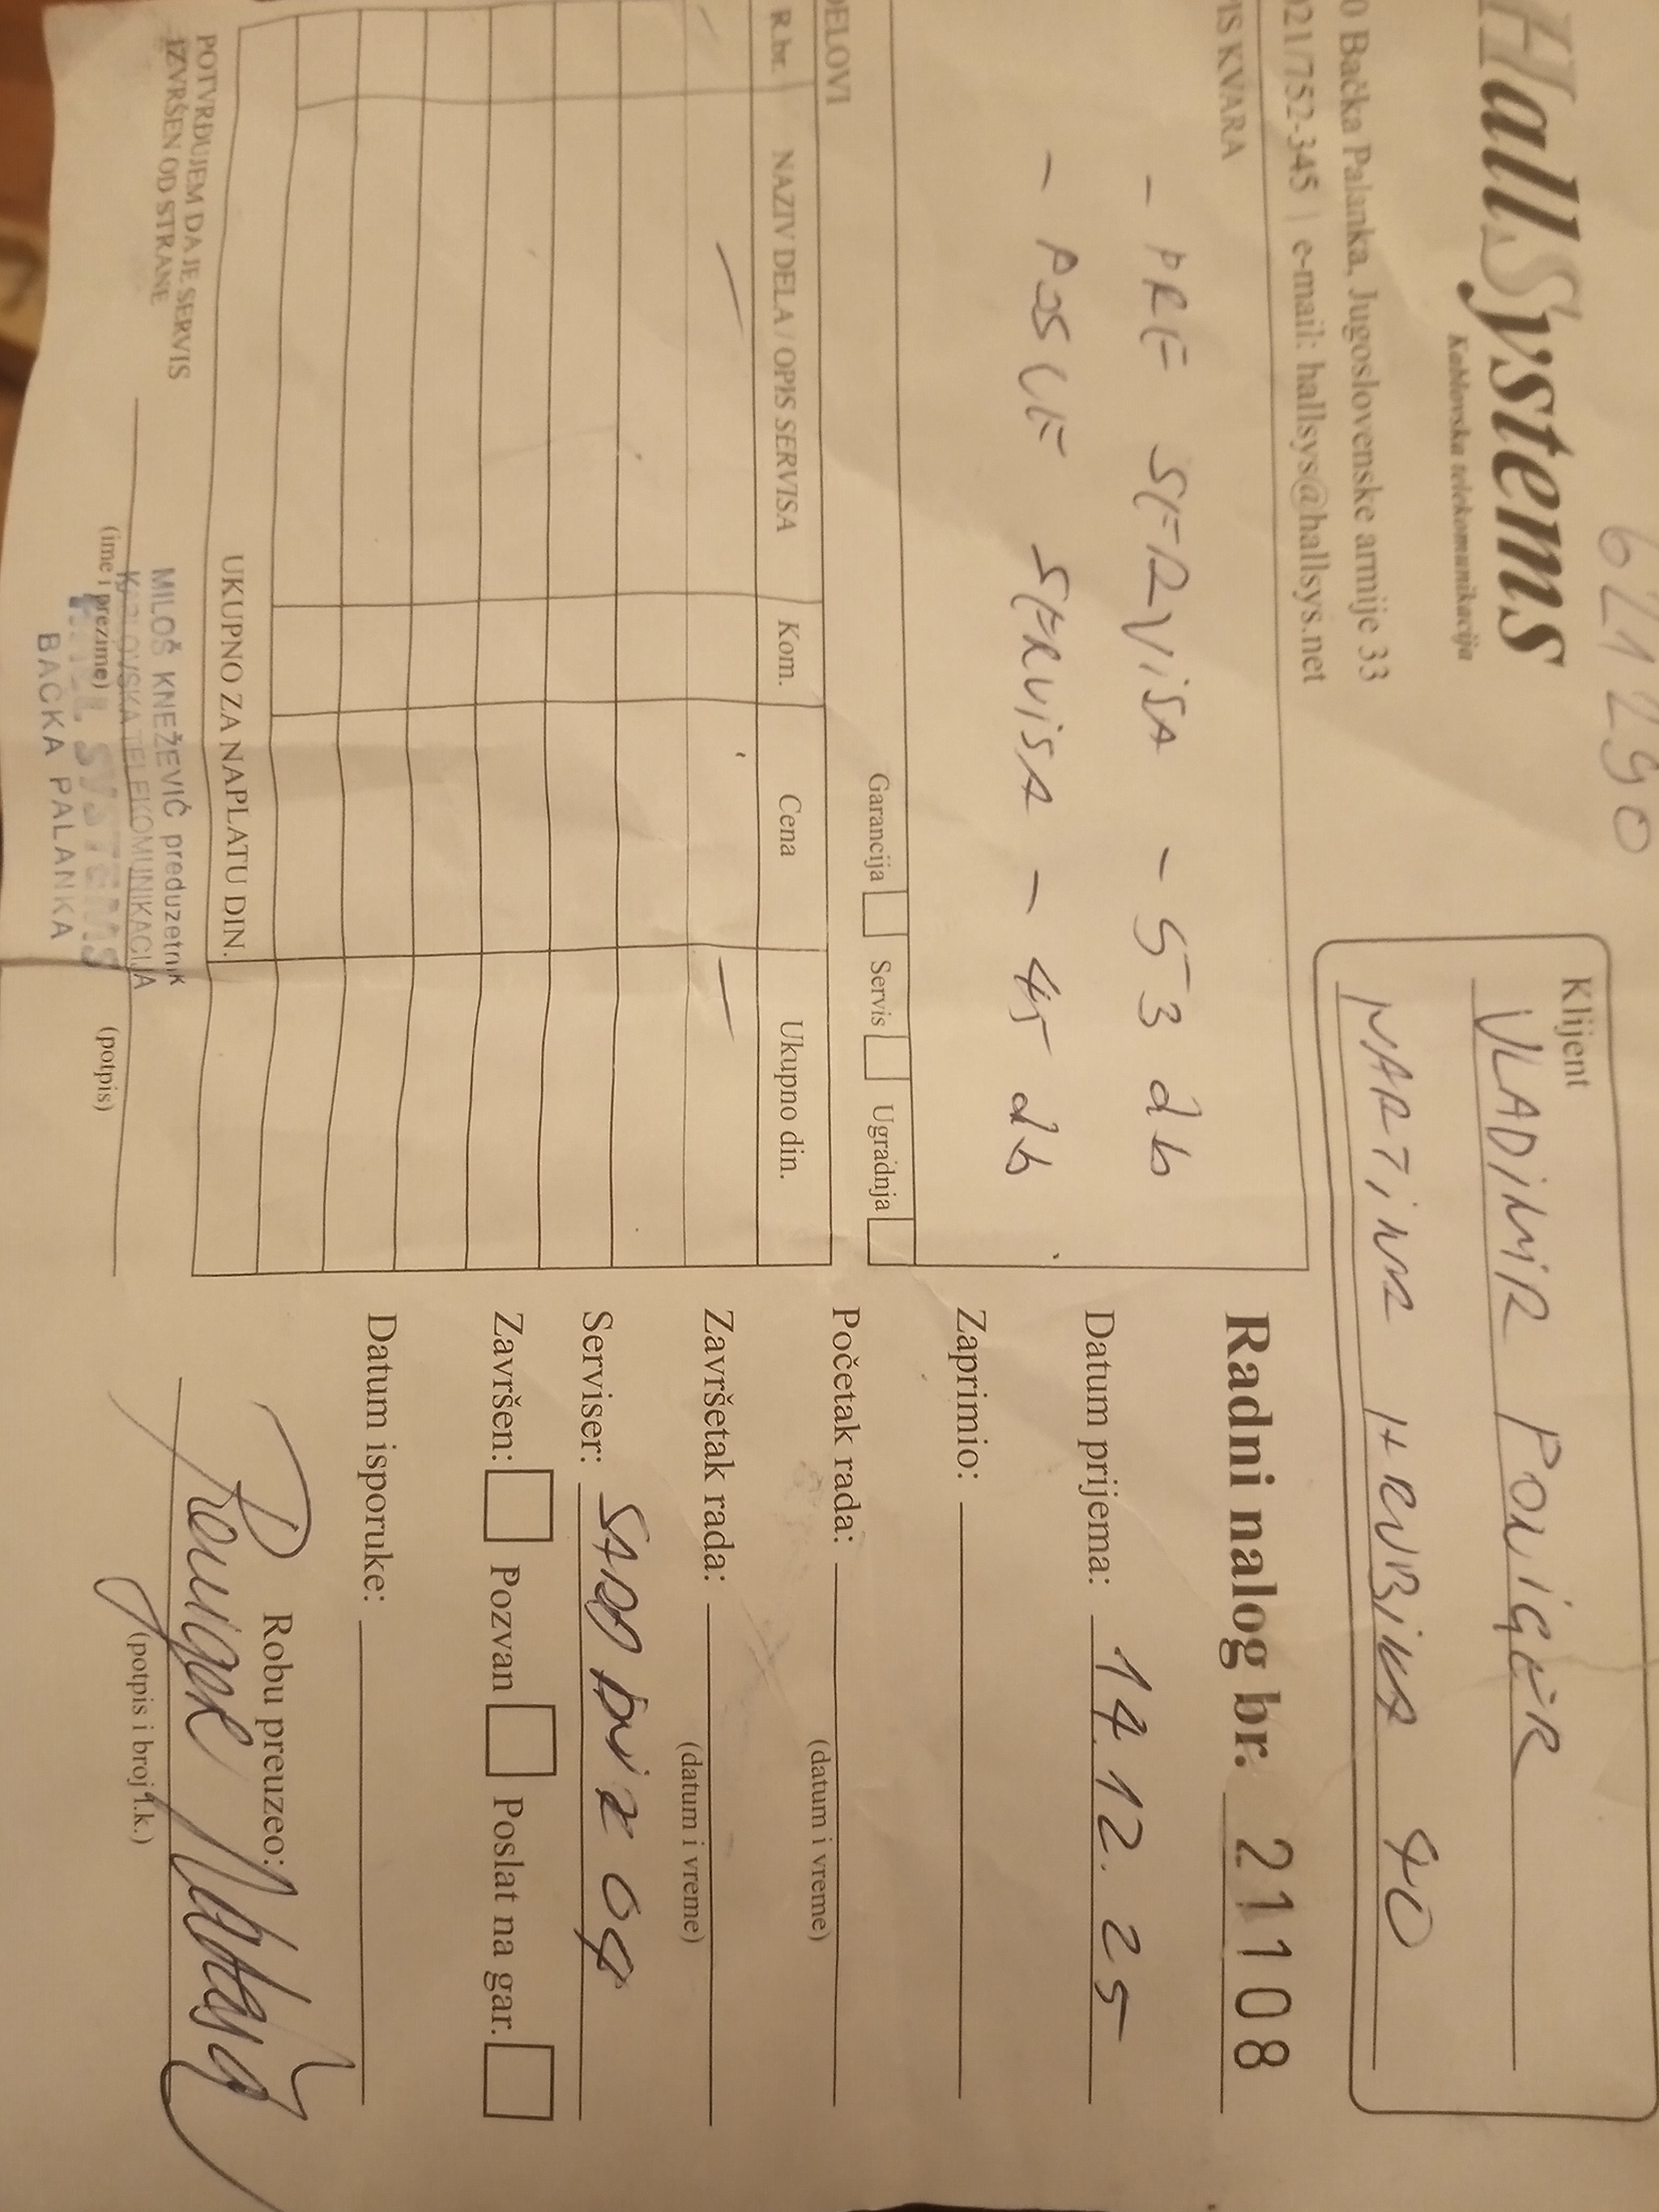 621290
HallSystems
Kablovska telekomunikacija
0 Bačka Palanka, Jugoslovenske armije 33
021/752-345 | e-mail: hallsys@hallsys.net
Klijent
VLADIMIR PONIGER
MARTINA 40
IS KVARA
- PRE SERVISA - 53 db
- POSLE SERVISA - 45 db
Garancija Servis Ugradnja
DELOVI
R.br. NAZIV DELA / OPIS SERVISA Kom. Cena Ukupno din.
UKUPNO ZA NAPLATU DIN.
POTVRĐUJEM DA JE SERVIS
IZVRŠEN OD STRANE
(ime i prezime)
(potpis)
MILOŠ KNEŽEVIĆ preduzetnik
KABLOVSKA TELEKOMUNIKACIJA
HALL SYSTEMS
BAČKA PALANKA
Radni nalog br. 21108
Datum prijema: 14.12.25
Zaprimio:
Početak rada:
(datum i vreme)
Završetak rada:
(datum i vreme)
Serviser:
Završen: Pozvan Poslat na gar.
Datum isporuke:
Robu preuzeo:
(potpis i broj l.k.)